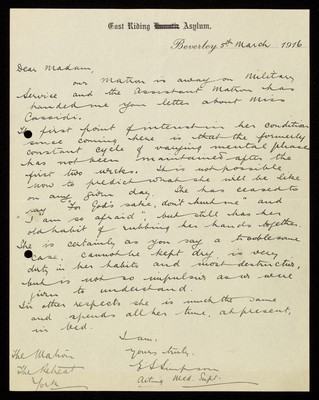 East Riding Asylum.
Beverley, 5th March 1916
Dear Madam,
our Matron is away on Military
Service and the Assistant Matron has
handed me your letter about Miss
Cassidi.
The first point of interest in her condition
since coming here is that the formerly
constant cycle of varying mental phases
has not been maintained after the
first two weeks. It is not possible
now to predict what she will be like
on any given day. She has ceased to
say "For God's sake, don't hurt me" and
"I am so afraid", but still has her
old habit of rubbing her hands together.
She is certainly as you say a troublesome
case, cannot be kept dry is very
dirty in her habits and most destructive,
but is not so impulsive as we were
given to understand.
In other respects she is much the same
and spends all her time, at present,
in bed.
I am,
yours truly.
E S Simpson
Acting Med. Supt.
The Matron
The Retreat
York